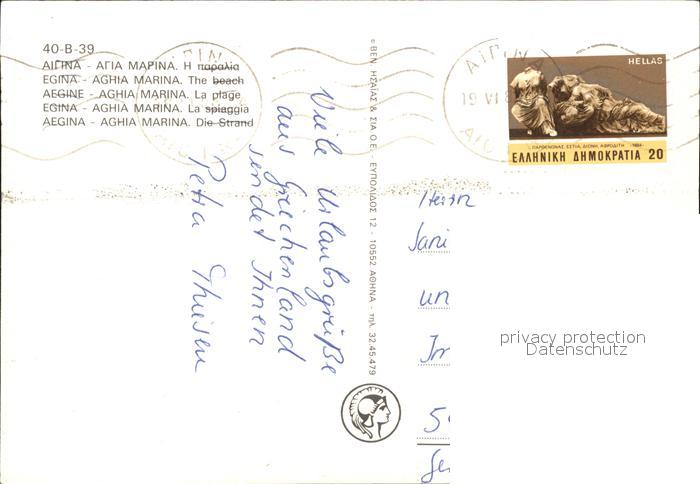 40-B-39
ΑΙΓΙΝΑ - ΑΓΙΑ ΜΑΡΙΝΑ. Η παραλία
EGINA - AGHIA MARINA. The beach
AEGINE - AGHIA MARINA. La plage
EGINA - AGHIA MARINA. La spiaggia
AEGINA - AGHIA MARINA. Die Strand
Viele Urlaubsgrüße
aus Griechenland
sendet Ihnen
Petra Thissen
© ΒΕΝ. ΗΣΑΪΑΣ & ΣΙΑ Ο.Ε. - ΕΥΠΟΛΙΔΟΣ 12 - 10552 ΑΘΗΝΑ - τηλ. 32.45.479
ΑΙΓΙΝΑ
19 VI 8
HELLAS
ΠΑΡΘΕΝΩΝΑΣ, ΕΣΤΙΑ, ΔΙΩΝΗ, ΑΦΡΟΔΙΤΗ 1984
ΕΛΛΗΝΙΚΗ ΔΗΜΟΚΡΑΤΙΑ 20
Herrn
Jani
un
Im
5
Ge
privacy protection
Datenschutz